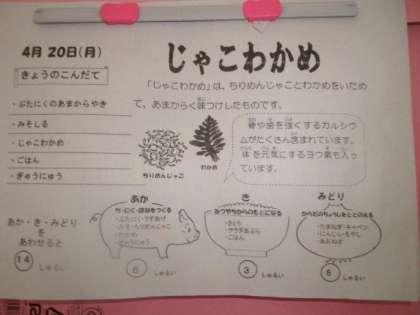 4月 20日(月)
きょうのこんだて
・ぶたにくのあまからやき
・みそしる
・じゃこわかめ
・ごはん
・ぎゅうにゅう
じゃこわかめ
「じゃこわかめ」は、ちりめんじゃことわかめをいため
て、あまからく味つけしたものです。
骨や歯を強くするカルシウ
ムがたくさん含まれています。
体を元気にするヨウ素も入っ
ています。
ちりめんじゃこ
わかめ
あか・き・みどり
を
あわせると
14 しゅるい
あか
ち・にく・ほねをつくる
・わかめ
・ぎゅうにゅう
6 しゅるい
き
・さとう
・ごはん
3 しゅるい
みどり
からだのちょうしをととのえる
・たまねぎ・キャベツ
・にんじん・もやし
しゅるい